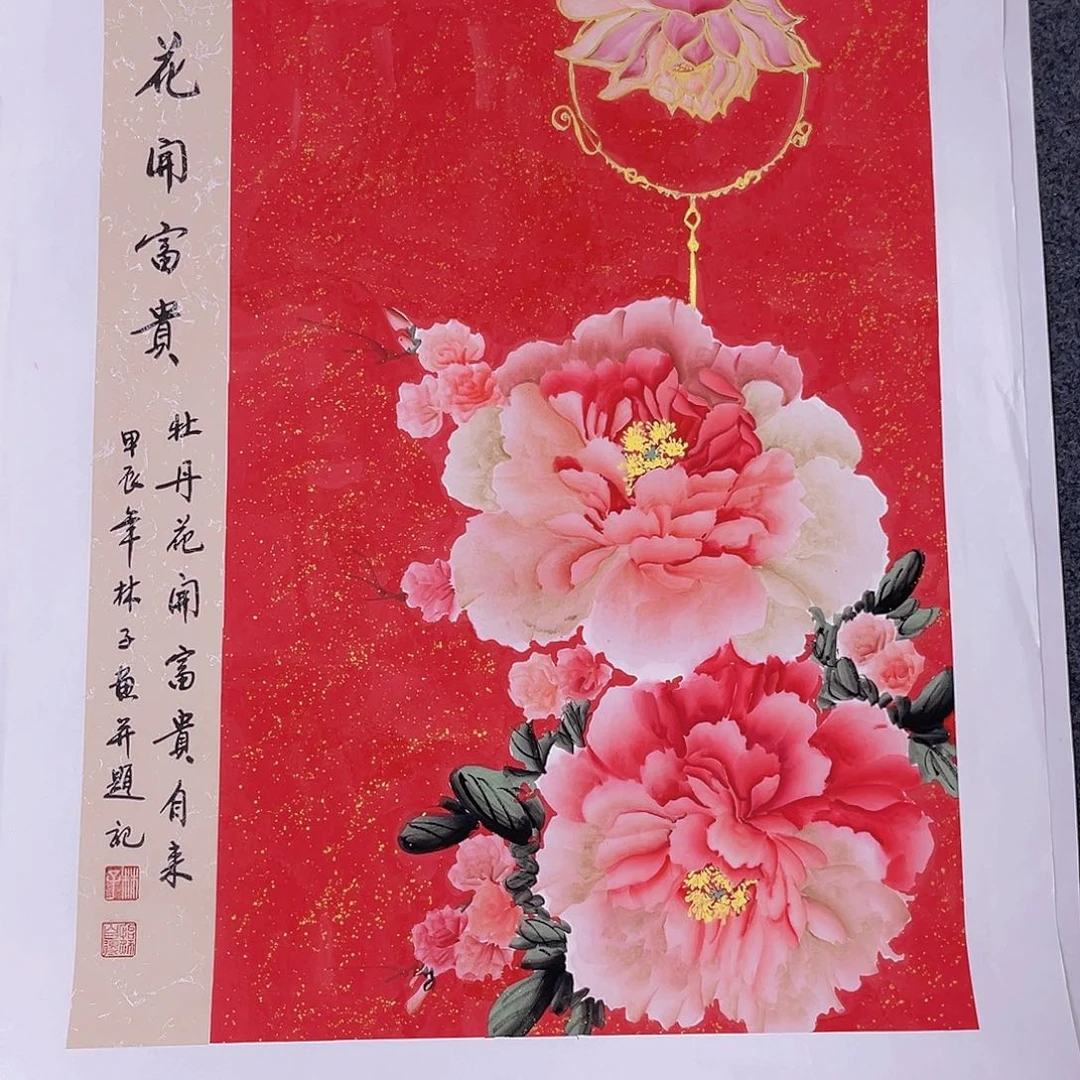 花開富貴
牡丹花開富貴自来
甲辰年林子畫并題記